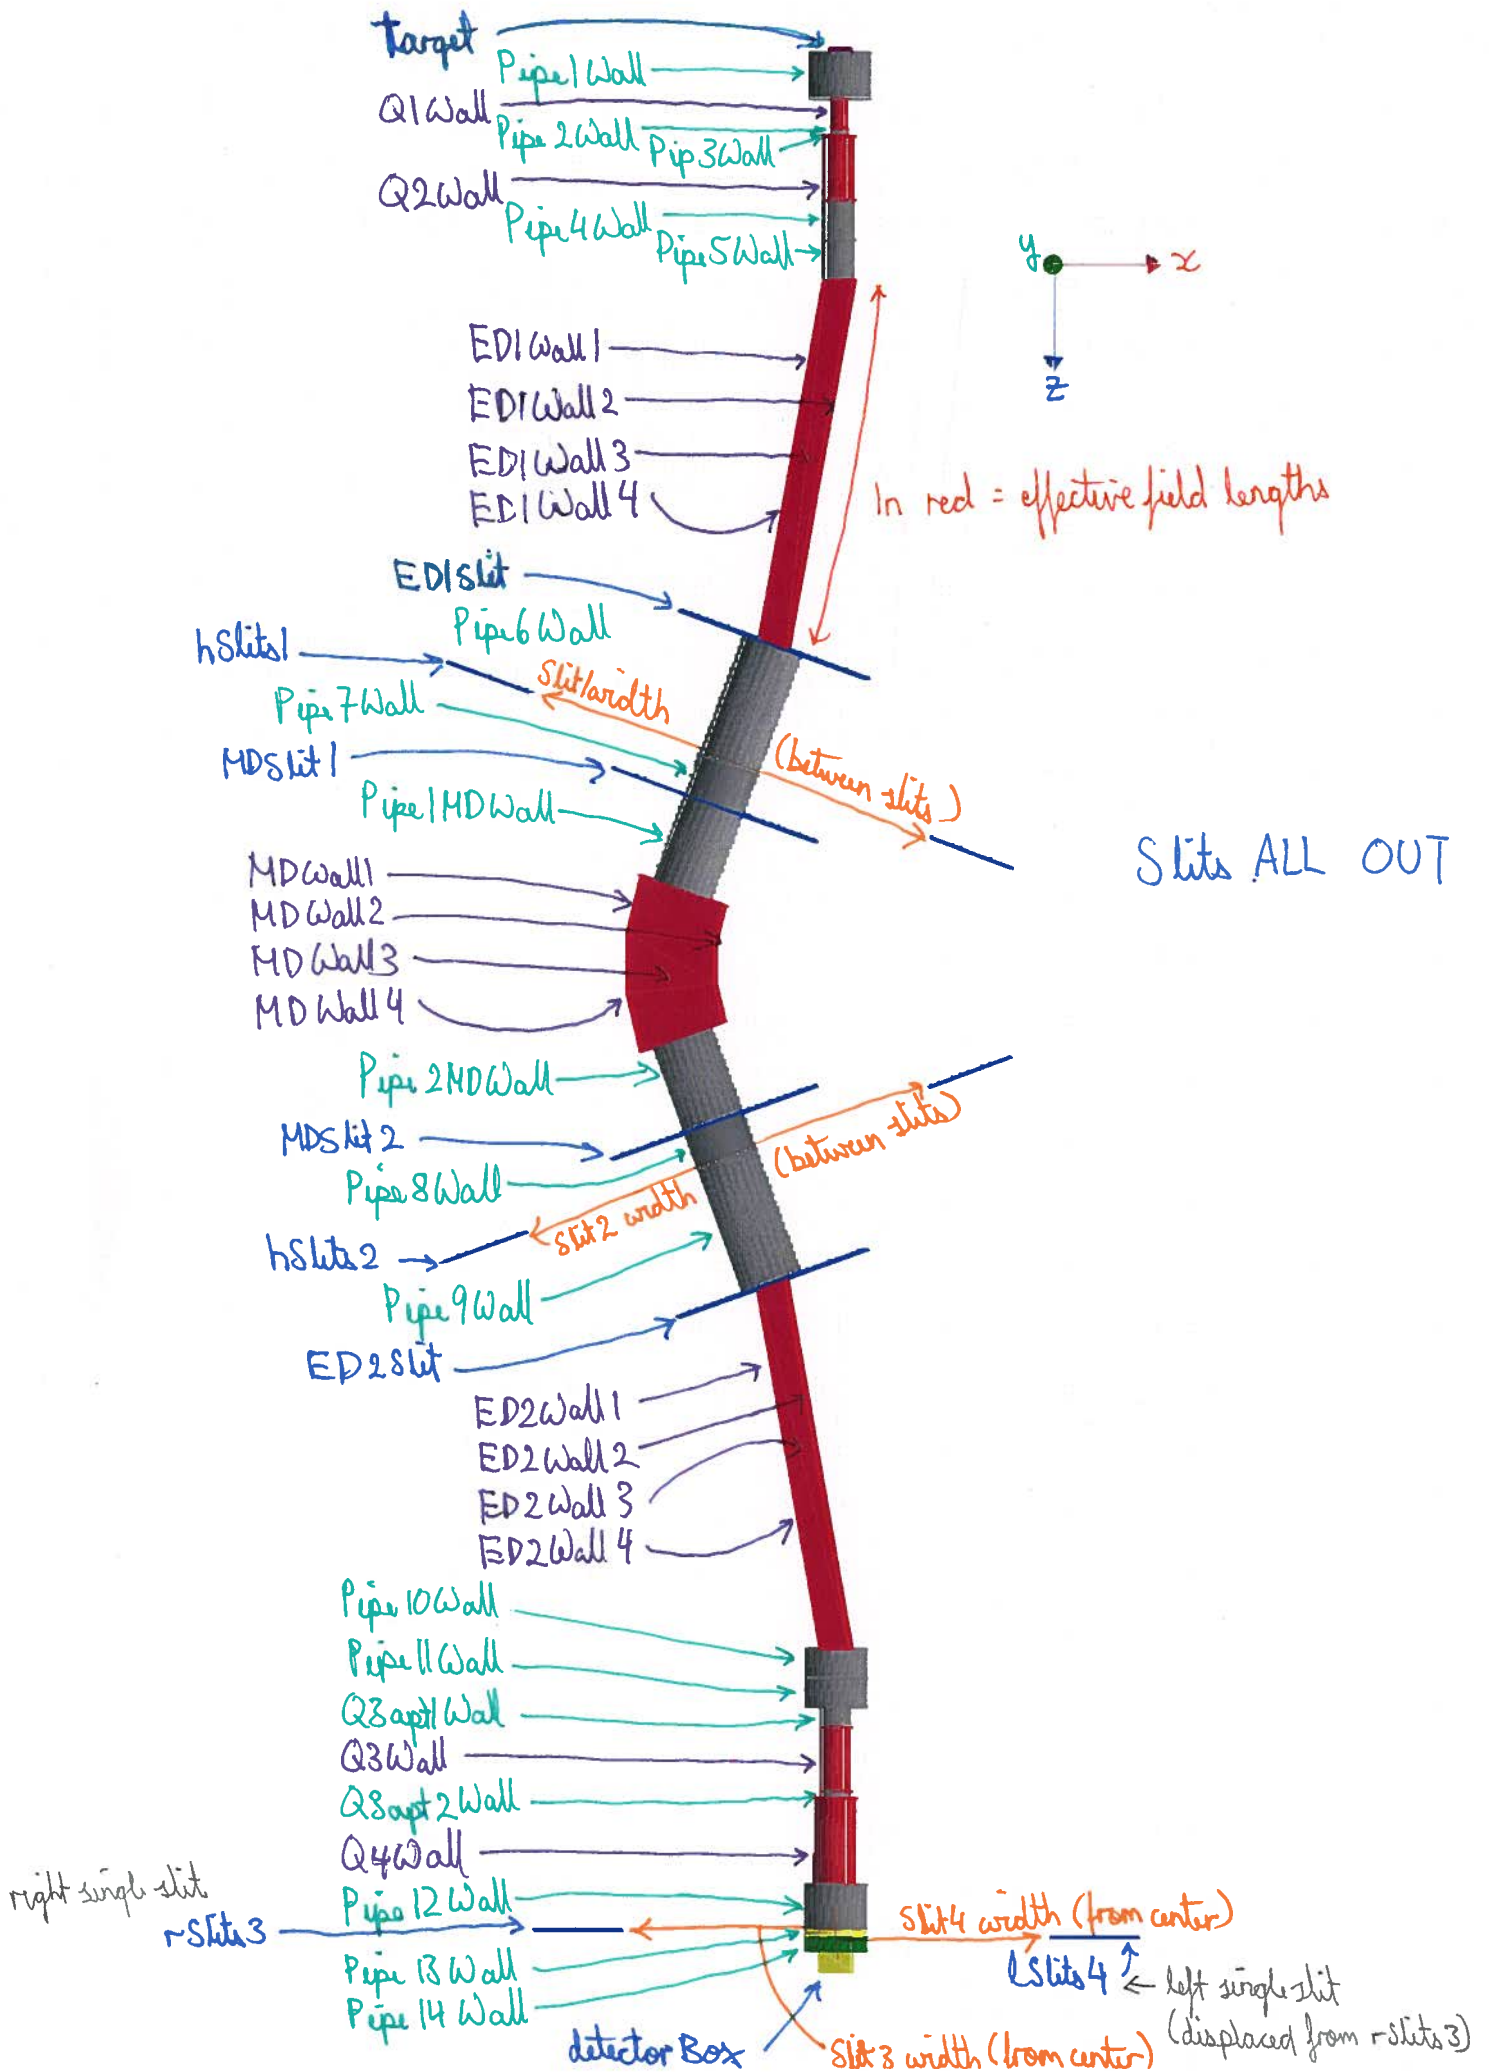 Target
Pipe1Wall
Q1Wall
Pipe 2Wall
Pip3Wall
Q2Wall
Pipe4Wall
Pipe5Wall
y
x
z
ED1Wall1
ED1Wall2
ED1Wall3
ED1Wall4
In red = effective field lengths
ED1Slit
Pipe6Wall
hSlits1
Slit1width
(between slits)
Pipe7Wall
MDSlit1
Pipe1MDWall
Slits ALL OUT
MDWall1
MDWall2
MDWall3
MDWall4
Pipe2MDWall
MDSlit2
(between slits)
Pipe8Wall
Slit2 width
hSlits2
Pipe9Wall
ED2Slit
ED2Wall1
ED2Wall2
ED2Wall3
ED2Wall4
Pipe10Wall
Pipe11Wall
Q3apt1Wall
Q3Wall
Q3apt2Wall
Q4Wall
right single slit
Pipe12Wall
Slit4 width (from center)
rSlits3
Pipe13Wall
lSlits4
← left single slit
Pipe14Wall
(displaced from rSlits3)
detectorBox
Slit3 width (from center)